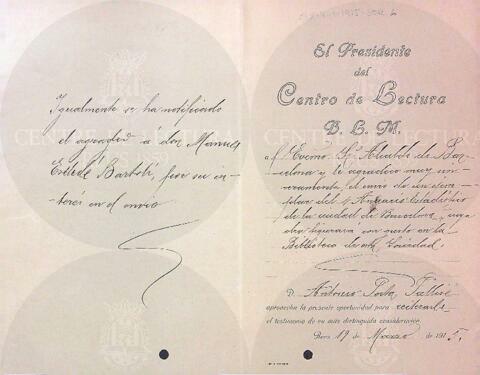 Igualmente se ha notificado
el agradeº a don Manuel
Bartolí, por su in-
terés en el envío
El Presidente
del
Centro de Lectura
B. L. M.
al Excmo. Sr. Alcalde de Bar-
celona y le agradece muy sin-
ceramente el envío de un ejem-
plar del Anuario Estadístico
de la ciudad de Barcelona, cuya
obra figurará con gusto en la
Biblioteca de esta Sociedad.
D. Antonio Porta Pallisé
aprovecha la presente oportunidad para reiterarle
el testimonio de su más distinguida consideración.
Reus 19 de Marzo de 1915.